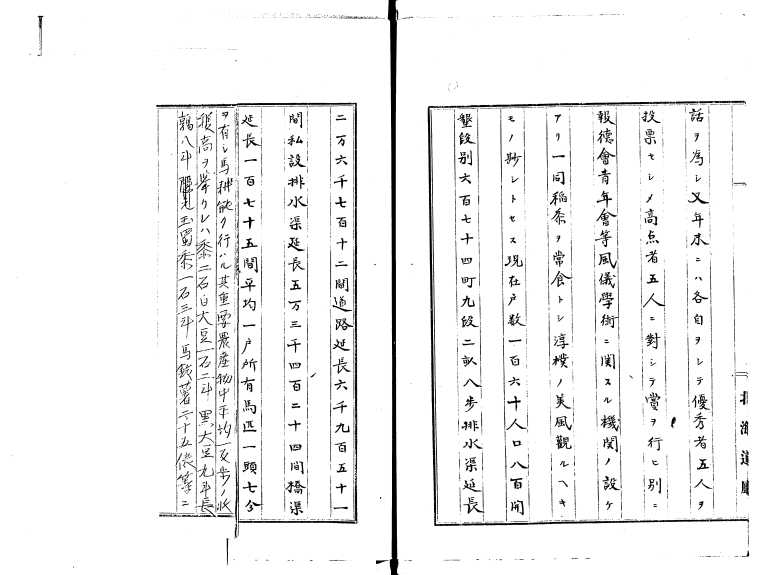 話ヲ為シ又年末ニハ各自ヲシテ優秀者五人ヲ
投票セシメ高点者五人ニ對シテ賞ヲ行ヒ別ニ
報徳會青年會等風儀學術ニ関スル機関ノ設ケ
アリ一同稲黍ヲ常食トシ淳樸ノ美風觀ルヘキ
モノ尠シトセス現在戸数一百六十人口八百開
墾段別六百七十四町九段二畝八歩排水渠延長
北海道廳
二万六千七百十二間道路延長六千九百五十一
間私設排水渠延長五万三千四百二十四間橋渠
延長一百七十五間平均一戸所有馬匹一頭七分
ヲ有シ馬耕能ク行ハル其重要農産物中平均一反歩ノ収
穫高ヲ擧クレハ黍二石白大豆一石二斗黒大豆九斗長
鶉八斗 玉蜀黍一石三斗馬鈴薯三十五俵等ニ